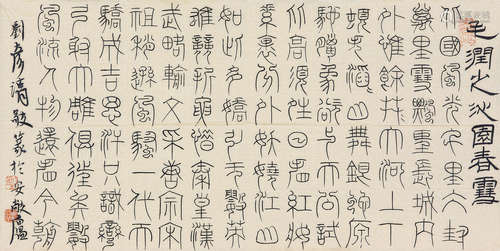 毛潤之沁園春雪
北國風光千里冰封
萬里雪飄望長城內
外惟餘莽莽大河上下
頓失滔滔山舞銀蛇原
馳蠟象欲與天公試
比高須晴日看紅裝
素裹分外妖嬈江山
如此多嬌引無數英
雄競折腰惜秦皇漢
武略輸文采唐宗宋
祖稍遜風騷一代天
驕成吉思汗只識彎
弓射大雕俱往矣數
風流人物還看今朝
敬篆於安